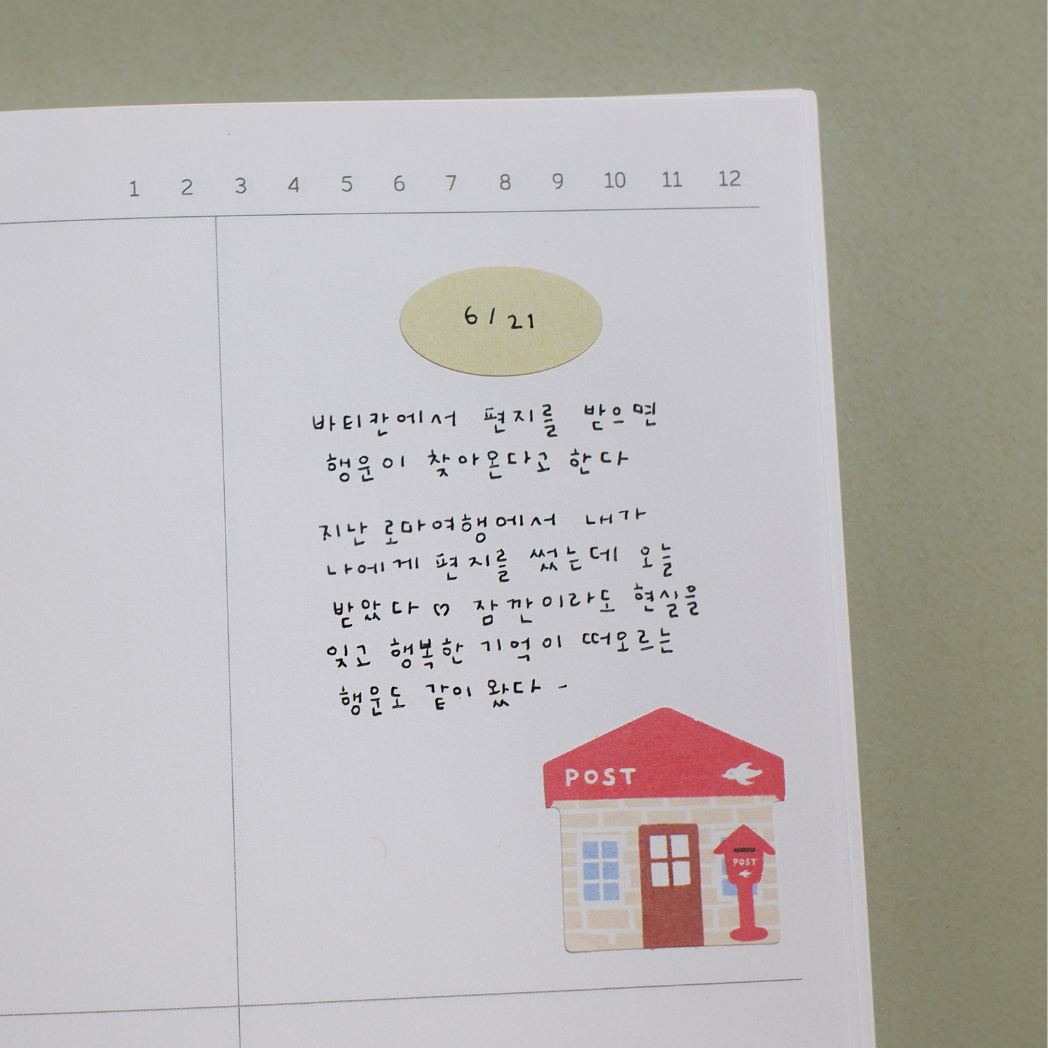 1 2 3 4 5 6 7 8 9 10 11 12
6/21
바티칸에서 편지를 받으면
행운이 찾아온다고 한다
지난 로마여행에서 내가
나에게 편지를 썼는데 오늘
받았다 ♡ 잠깐이라도 현실을
잊고 행복한 기억이 떠오르는
행운도 같이 왔다 -
POST
POST